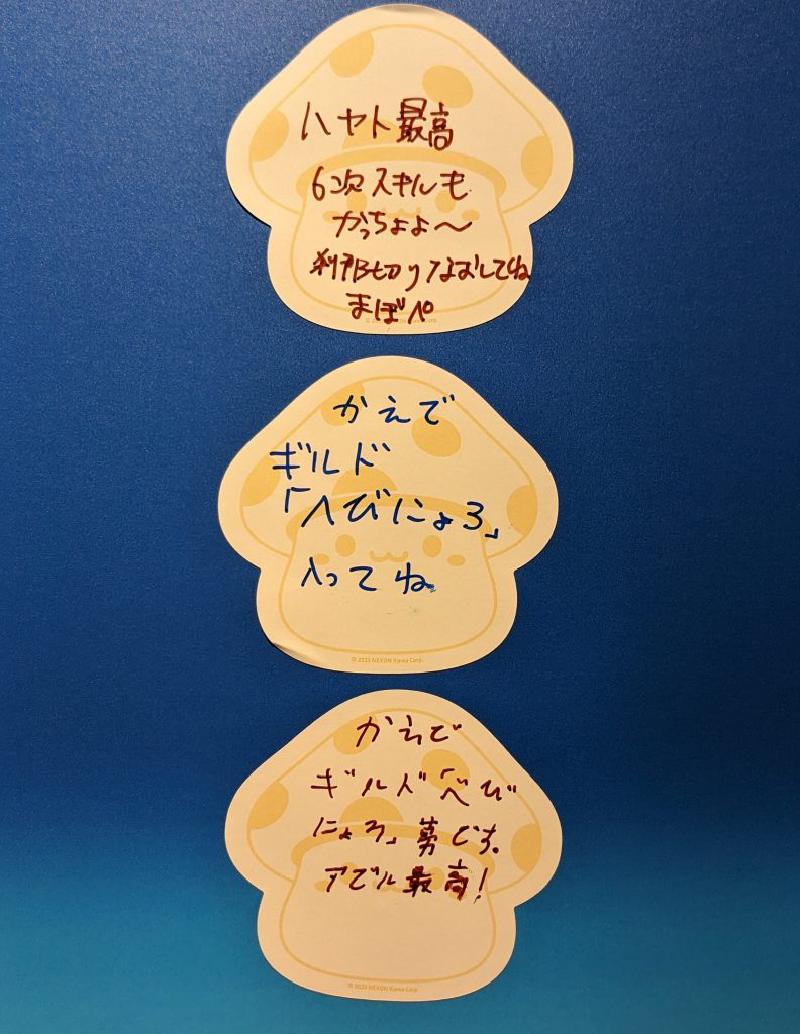 ハヤト最高
6次スキルも
かっちょよ〜
刹那切りなおしてね
まぼぺ
かえで
ギルド
「へびにょろ」
入ってね
© 2023 NEXON Korea Corp.
かえで
ギルド「へび
にょろ」です。
アデル最高!
© 2023 NEXON Korea Corp.